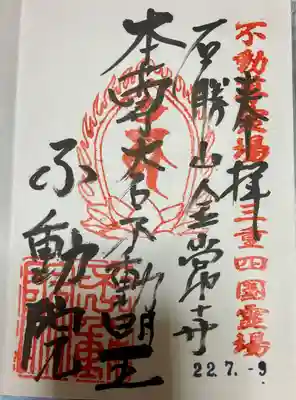 不動尊霊場 三重四国霊場
奉拝
石勝山金常寺
本尊大石不動明王
不動院
22.7.-9